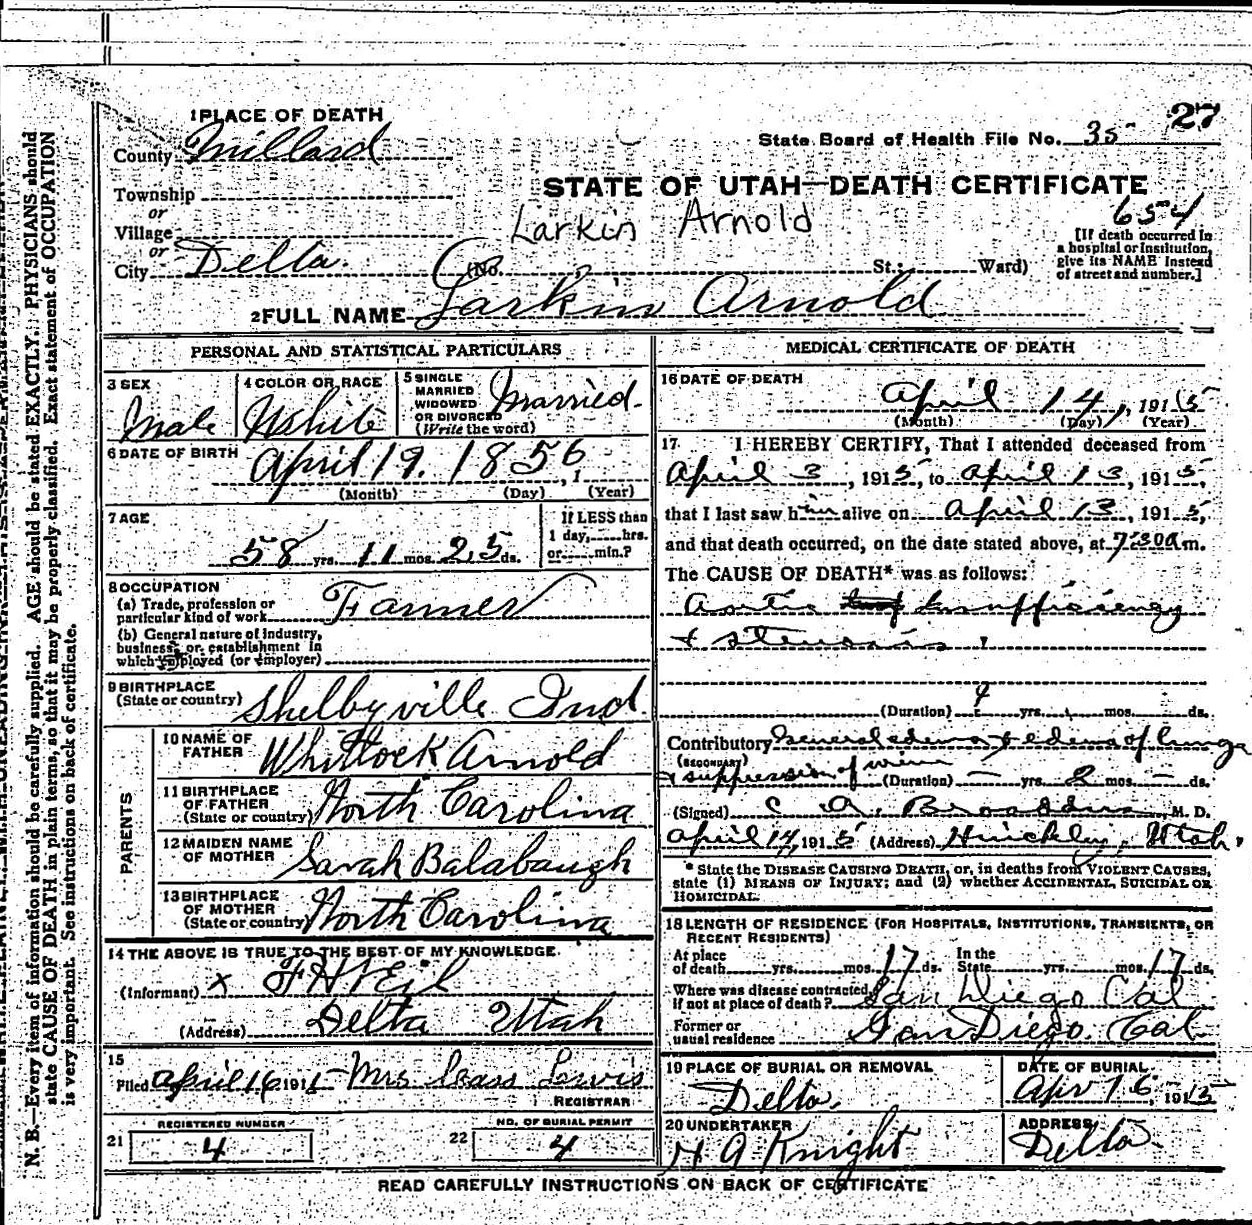 27
1 PLACE OF DEATH
State Board of Health File No. 35
County Millard
STATE OF UTAH—DEATH CERTIFICATE
Township
654
or
Larkin Arnold
Village
[If death occurred in
a hospital or institution,
give its NAME instead
of street and number.]
or
City Delta. (No. St.; Ward)
2 FULL NAME Larkin Arnold
PERSONAL AND STATISTICAL PARTICULARS
3 SEX
Male
4 COLOR OR RACE
White
5 SINGLE
MARRIED
WIDOWED
OR DIVORCED
(Write the word)
Married.
6 DATE OF BIRTH April 19. 1856, 1
(Month) (Day) (Year)
7 AGE
58 yrs. 11 mos. 25 ds.
If LESS than
1 day, hrs.
or min.?
8 OCCUPATION
(a) Trade, profession or
particular kind of work Farmer
(b) General nature of industry,
business, or establishment in
which employed (or employer)
9 BIRTHPLACE
(State or country) Shelbyville Ind
PARENTS
10 NAME OF
FATHER Whittock Arnold
11 BIRTHPLACE
OF FATHER
(State or country) North Carolina
12 MAIDEN NAME
OF MOTHER Sarah Balabaugh
13 BIRTHPLACE
OF MOTHER
(State or country) North Carolina
14 THE ABOVE IS TRUE TO THE BEST OF MY KNOWLEDGE.
(Informant) x
(Address) Delta Utah
15
Filed April 16 191 Mrs Lewis
REGISTRAR
21 REGISTERED NUMBER
4
22 NO. OF BURIAL PERMIT
4
MEDICAL CERTIFICATE OF DEATH
16 DATE OF DEATH
April 14, 1915
(Month) (Day) (Year)
17 I HEREBY CERTIFY, That I attended deceased from
April 3, 1915, to April 13, 1915,
that I last saw him alive on April 13, 1915,
and that death occurred, on the date stated above, at 7:30 a m.
The CAUSE OF DEATH* was as follows:
Aortic Insufficiency
+ stenosis.
(Duration) yrs. mos. ds.
Contributory General edema + edema of lungs
(SECONDARY)
+ suppression of urine (Duration) — yrs. 2 mos. — ds.
(Signed) C. A. Broaddus, M. D.
April 14, 1915 (Address) Hinckley, Utah.
* State the DISEASE CAUSING DEATH, or, in deaths from VIOLENT CAUSES,
state (1) MEANS OF INJURY; and (2) whether ACCIDENTAL, SUICIDAL OR
HOMICIDAL.
18 LENGTH OF RESIDENCE (FOR HOSPITALS, INSTITUTIONS, TRANSIENTS, OR
RECENT RESIDENTS)
At place
of death yrs. mos. 17 ds. In the
State yrs. mos. 17 ds.
Where was disease contracted,
if not at place of death? San Diego Cal
Former or
usual residence San Diego. Cal
19 PLACE OF BURIAL OR REMOVAL
Delta.
DATE OF BURIAL
Apr 16, 1915
20 UNDERTAKER
H A Knight
ADDRESS
Delta
READ CAREFULLY INSTRUCTIONS ON BACK OF CERTIFICATE
N. B.—Every item of information should be carefully supplied. AGE should be stated EXACTLY. PHYSICIANS should
state CAUSE OF DEATH in plain terms, so that it may be properly classified. Exact statement of OCCUPATION
is very important. See instructions on back of certificate.